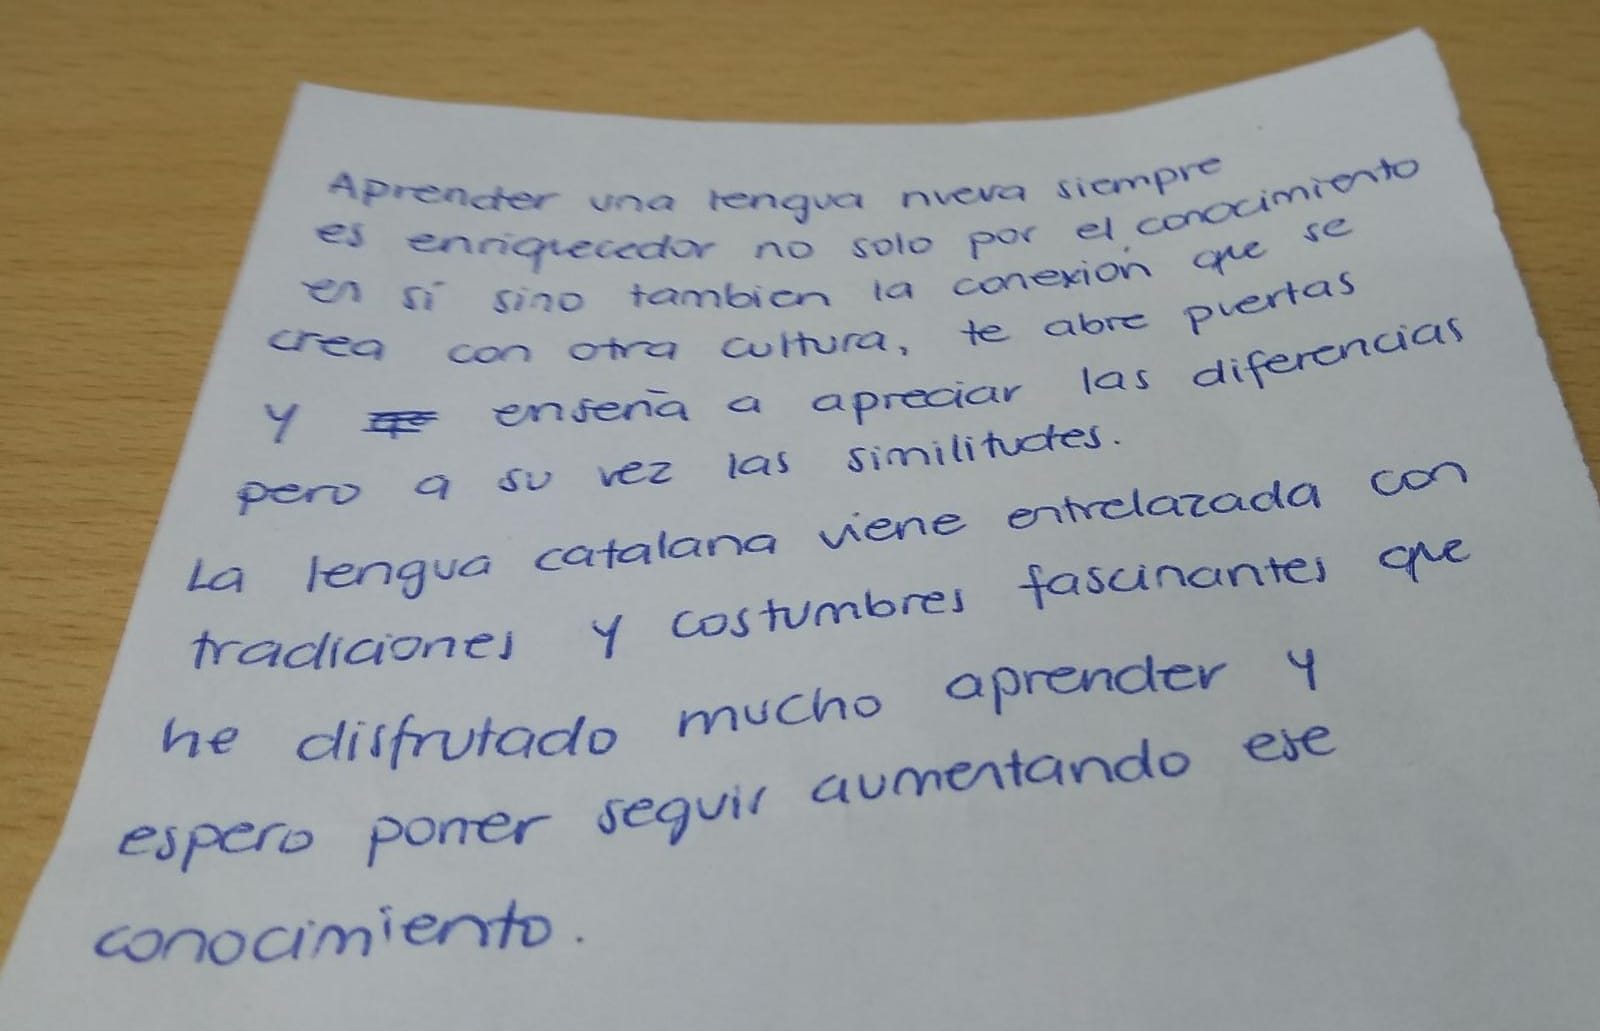 Aprender una lengua nueva siempre
es enriquecedor no solo por el conocimiento
en sí sino tambien la conexión que se
crea con otra cultura, te abre puertas
y enseña a apreciar las diferencias
pero a su vez las similitudes.
La lengua catalana viene entrelazada con
tradiciones y costumbres fascinantes que
he disfrutado mucho aprender y
espero poner seguir aumentando ese
conocimiento.